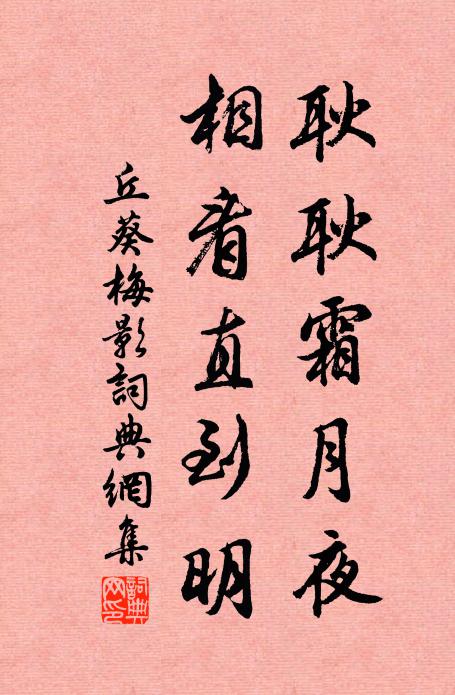 耿耿霜月夜
相看直到明
丘葵梅影詞典網集
詞典網印